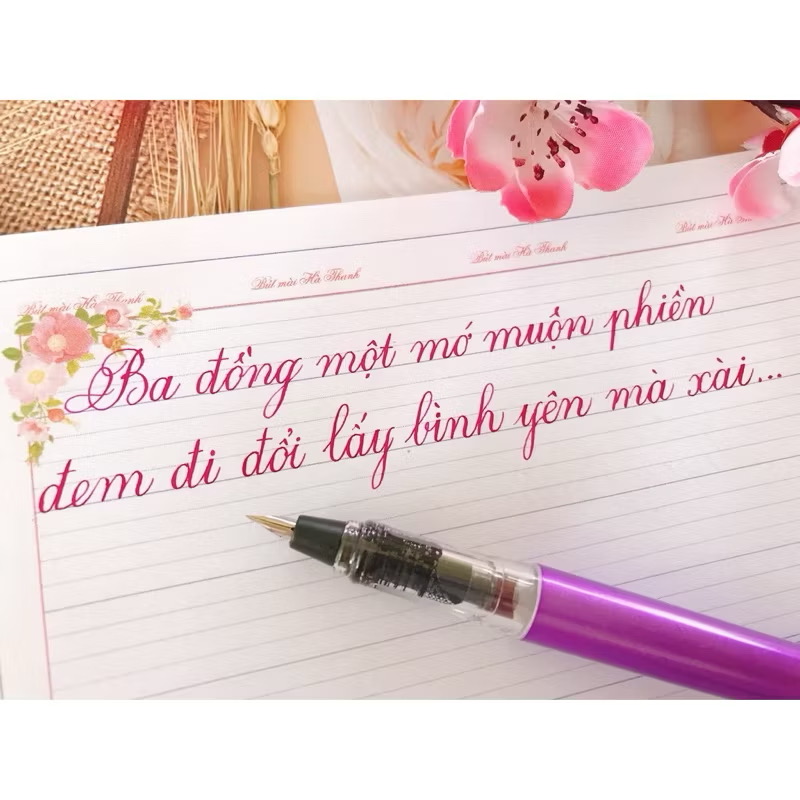 Bút mài Hà Thanh
Bút mài Hà Thanh
Bút mài Hà Thanh
Bút mài Hà
Ba đồng một mớ muộn phiền
đem đi đổi lấy bình yên mà xài...